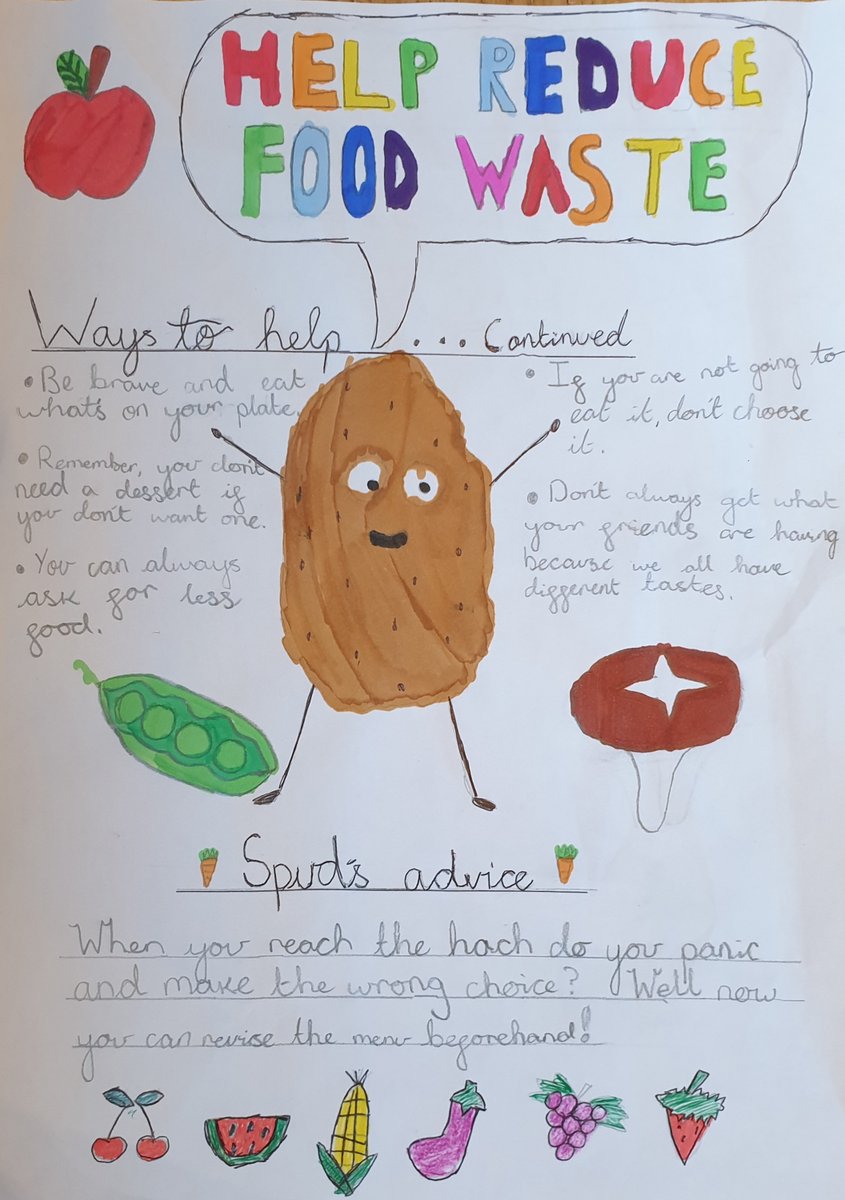 HELP REDUCE
FOOD WASTE
Ways to help
• Be brave and eat
what's on your plate.
• Remember, you don't
need a dessert if
you don't want one.
• You can always
ask for less
food.
... Continued
• If you are not going to
eat it, don't choose
it.
• Don't always get what
your friends are having
because we all have
different tastes.
Spud's advice
When you reach the hach do you panic
and make the wrong choice? Well now
you can revise the menu beforehand!